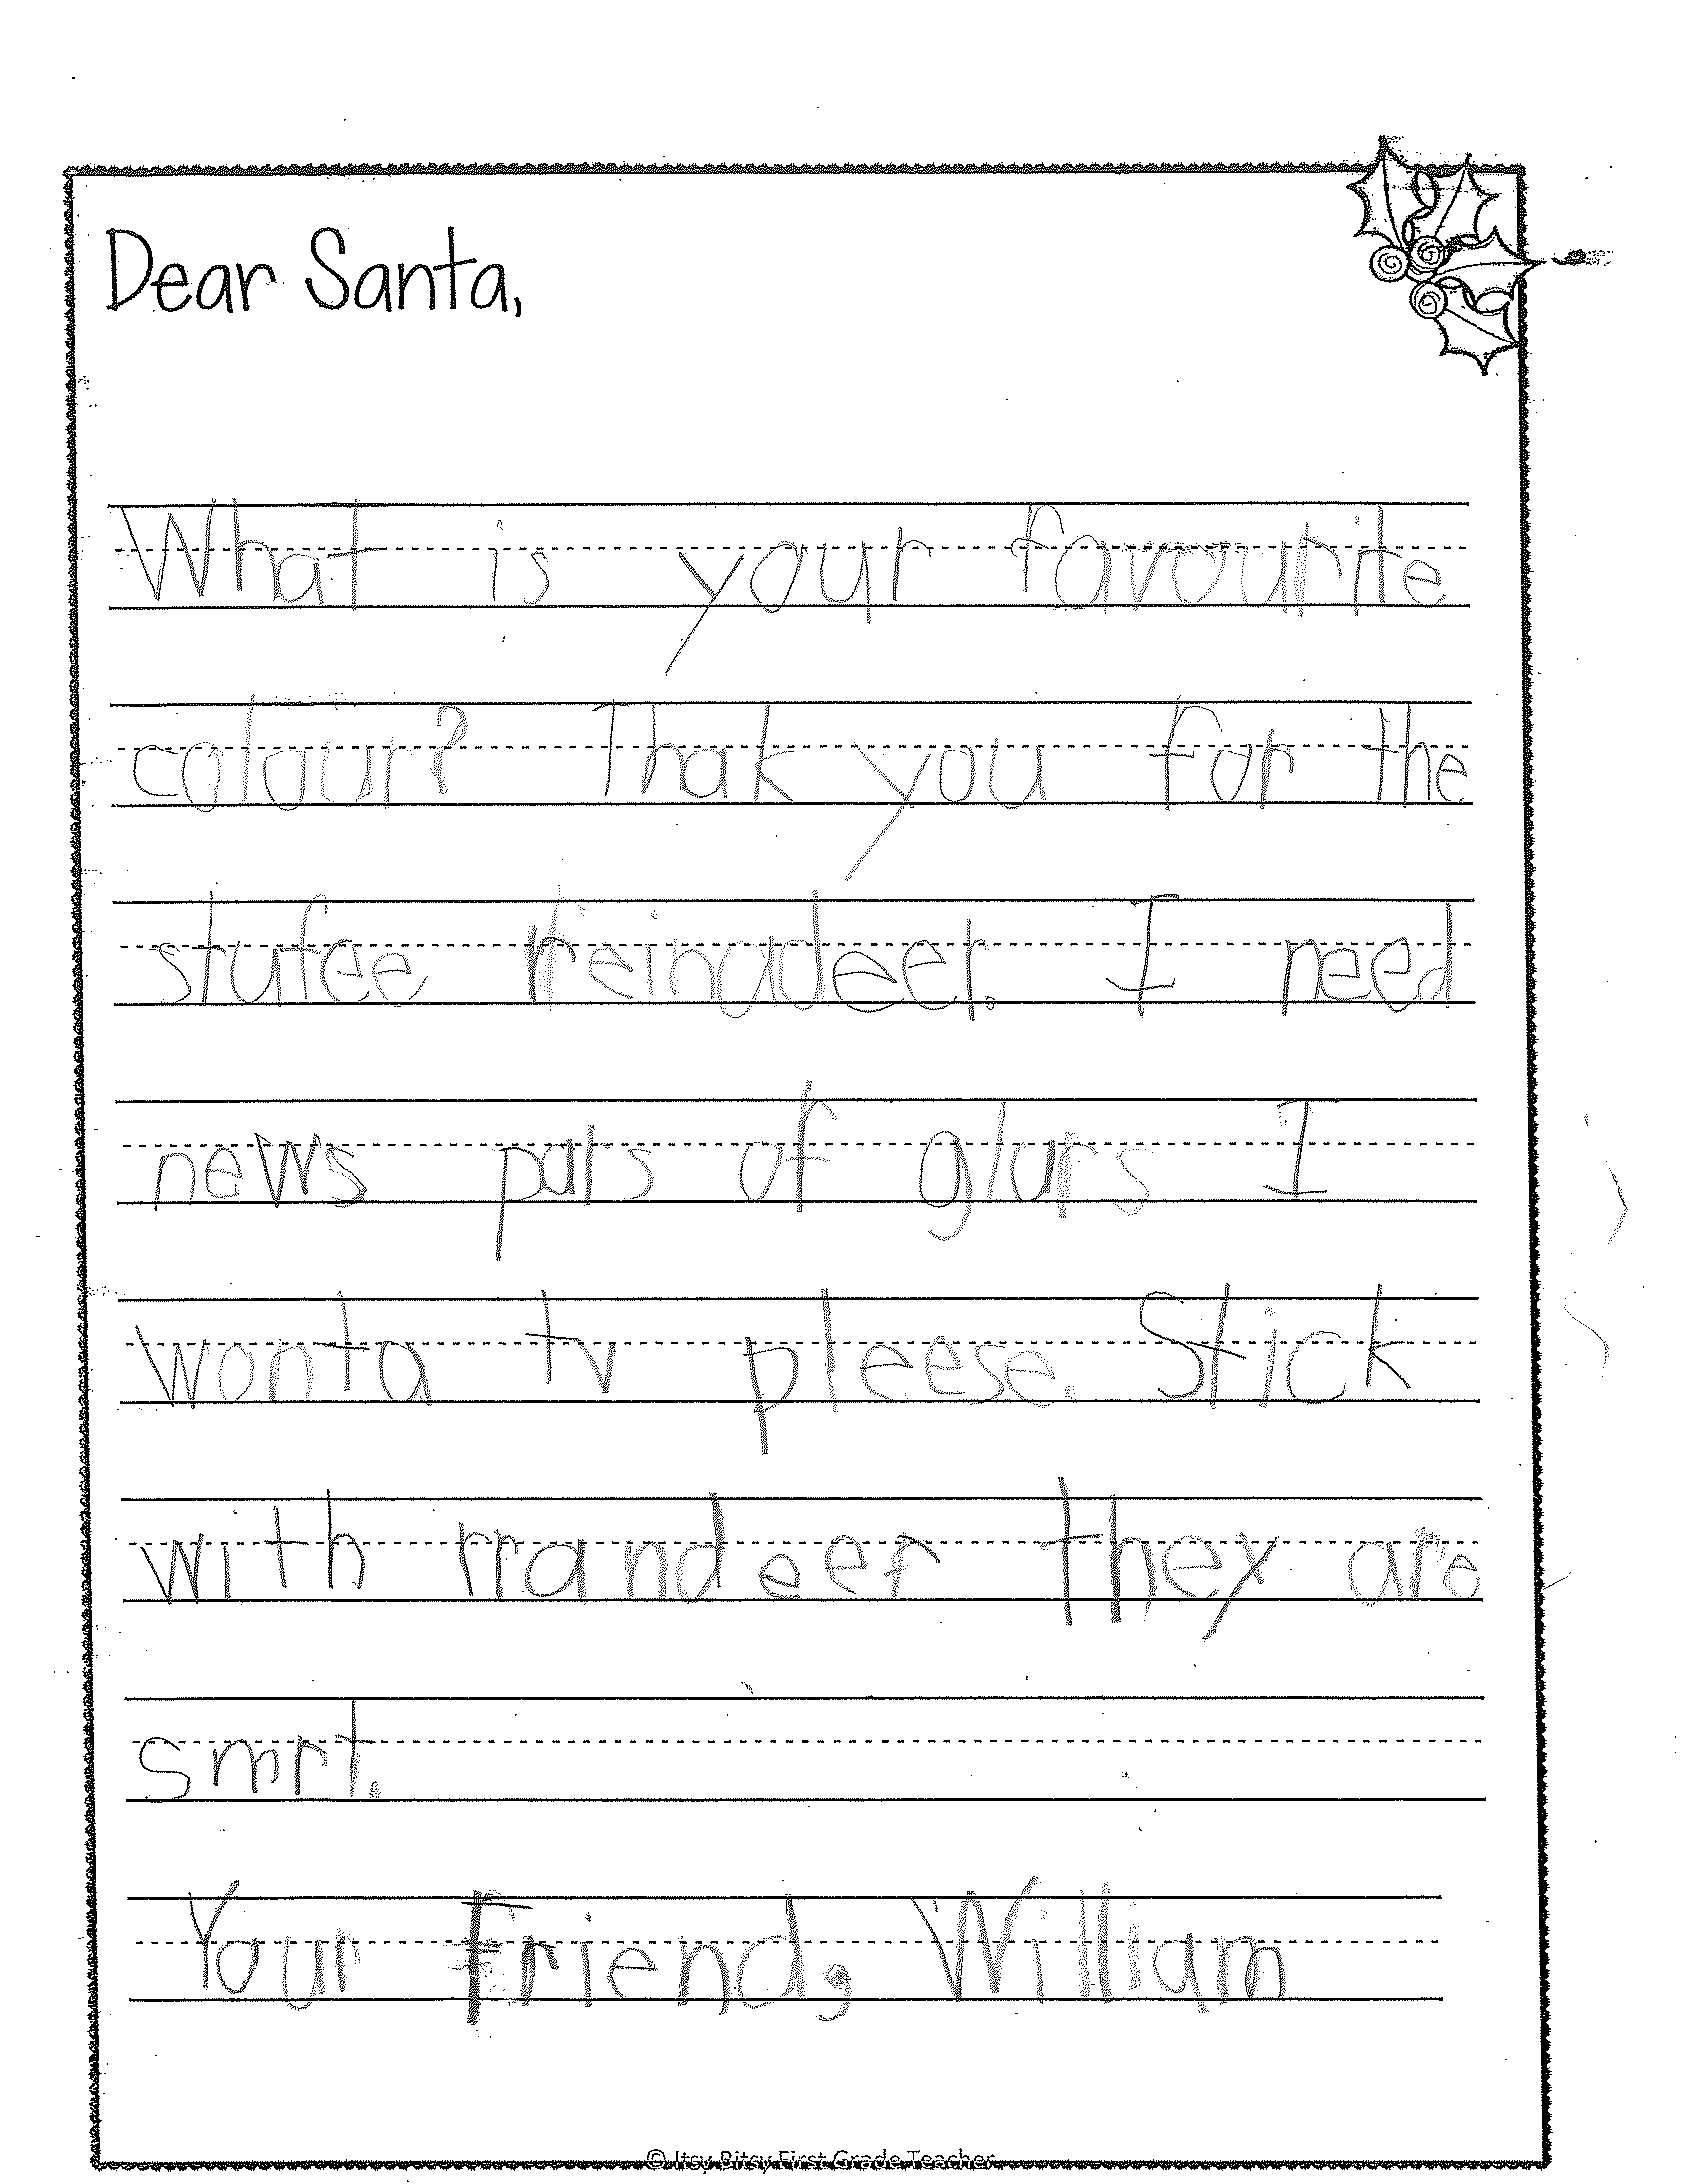 Dear Santa,
What is your favourite
colour? Thak you for the
stufee reinadeer. I need
news pars of glurs I
wonta tv pleese. Stick
with rrandeer they are
smrt.
Your friend, William
© Itsy Bitsy First Grade Teacher